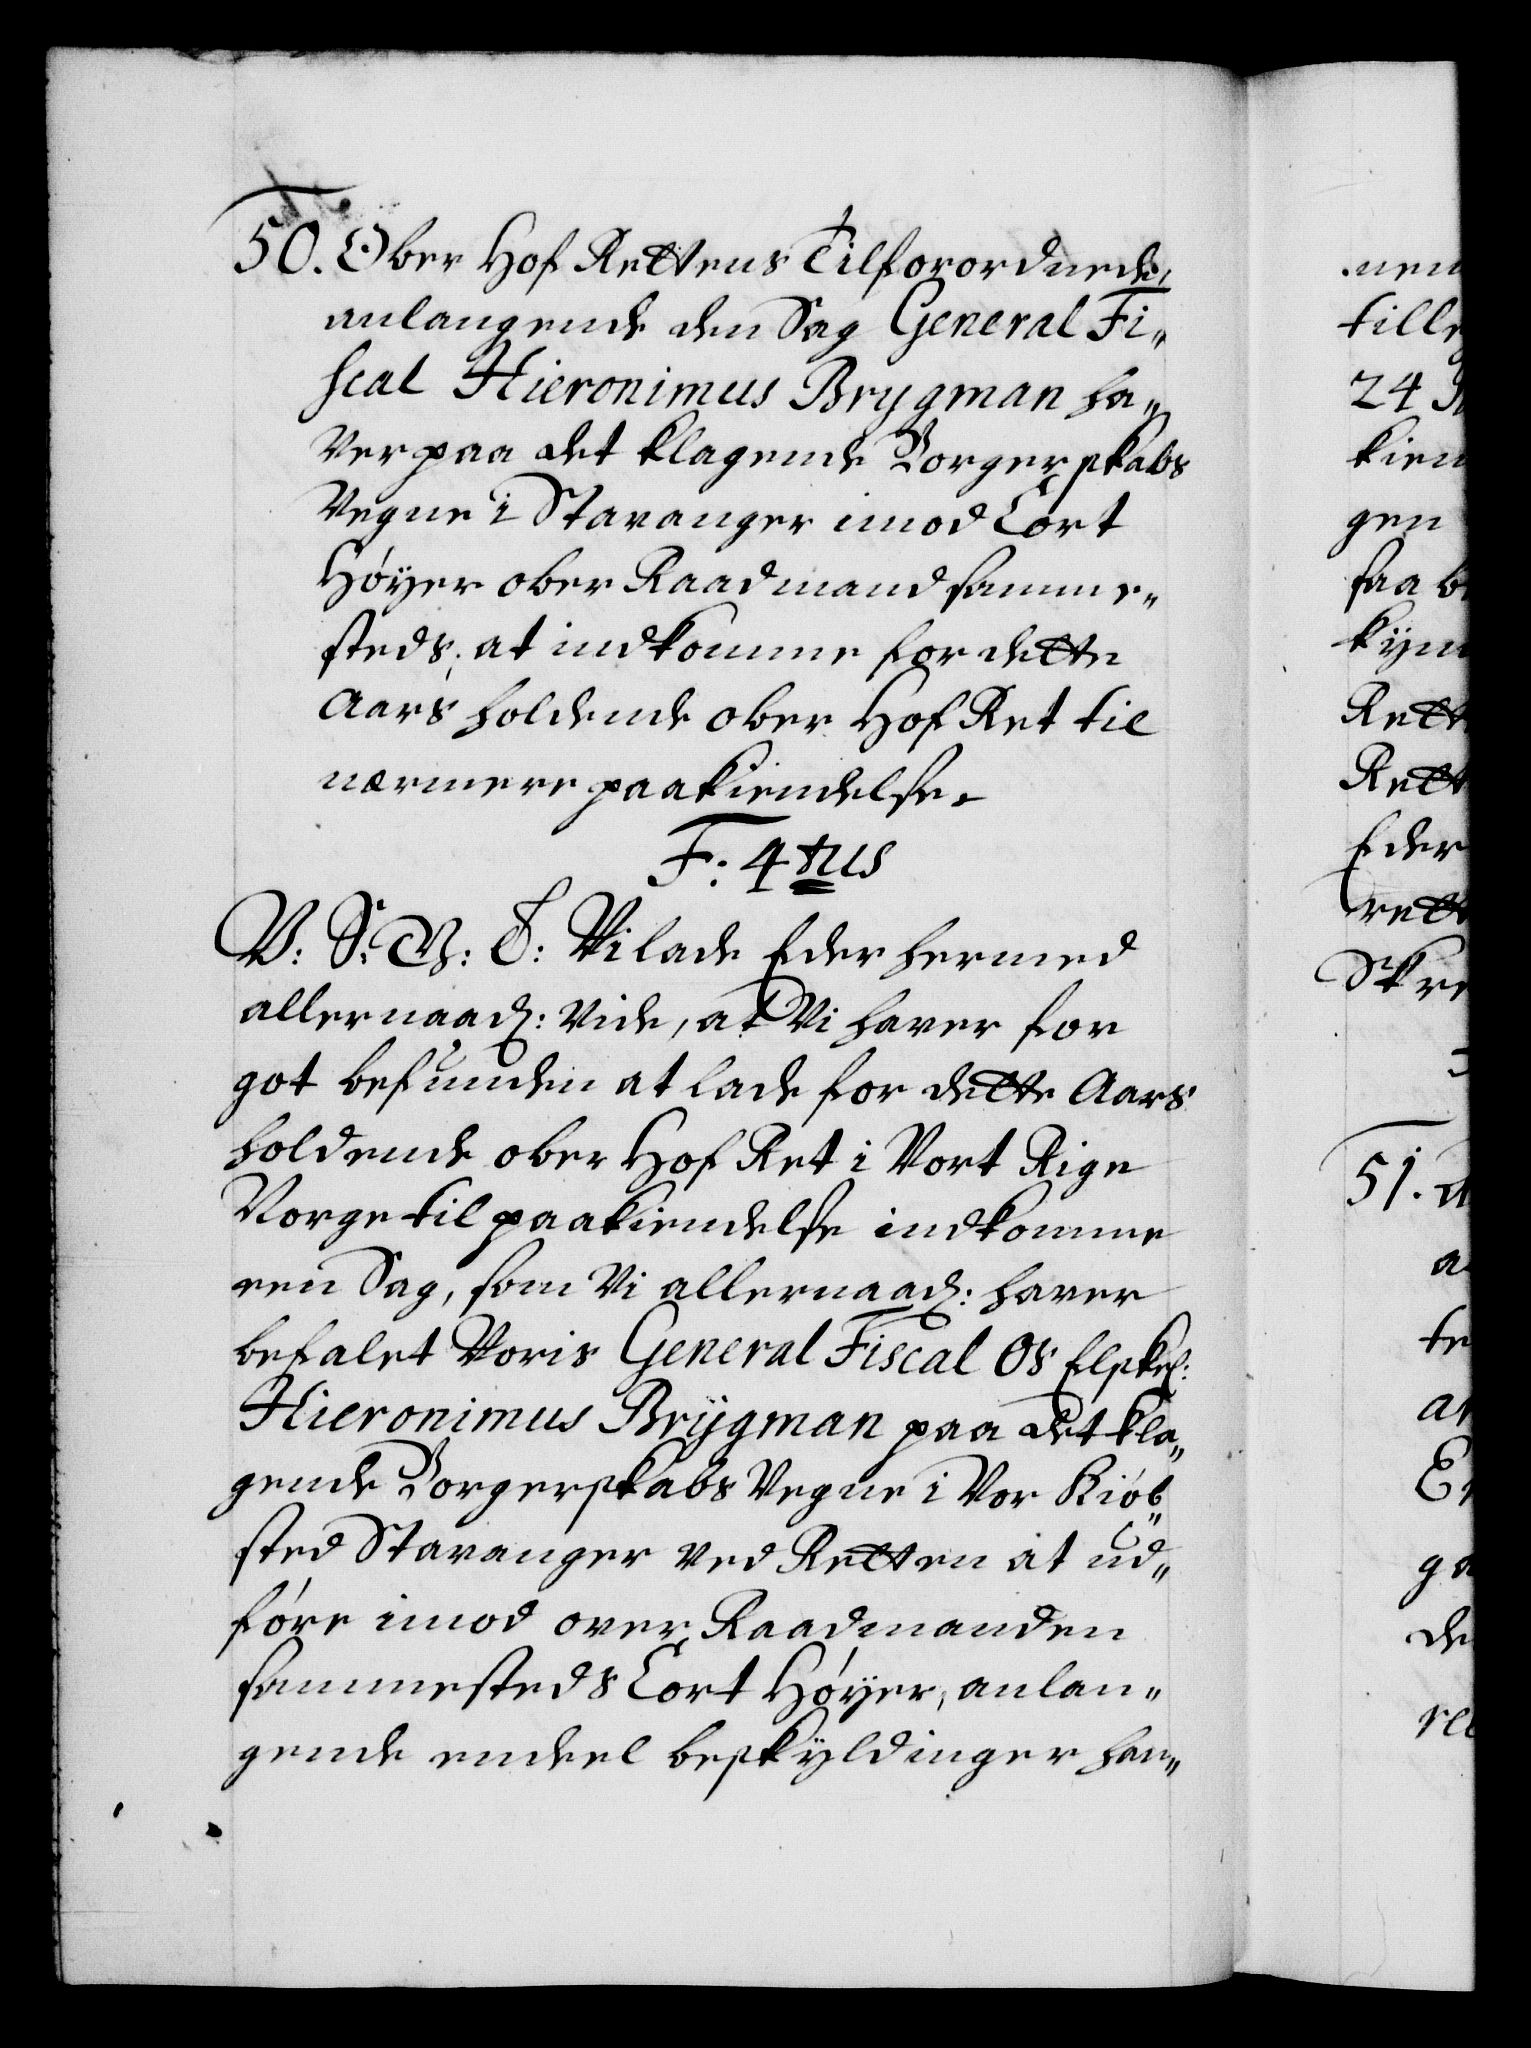 50. Ober Hof Rettens Tilforordnede,
anlangende den Sag General Fi„
scal Hieronimus Brygman ha„
ver paa det klagende Borgerskabs
Vegne i Stavanger imod Cort
Høÿer ober Raadmand samme„
steds, at indkomme for dette
Aars holdende ober Hof Ret til
nærmere paakiendelse.
F: 4tus
V: S: V: T: Vi lade Eder hermed
allernaad: vide, at Vi haver for
got befunden at lade for dette Aars
holdende ober Hof Ret i Vort Rige
Norge til paakiendelse indkomme
een Sag, som Vi allernaad: haver
befalet Voris General Fiscal Os Elskel:
Hieronimus Brÿgman paa det kla„
gende Borgerskabs Vegne i Vor Kiøb„
sted Stavanger ved Retten at ud„
føre imod over Raadmanden
sammesteds Cort Høÿer, anlan„
gende endeel beskÿldinger han„
nem
24
kien
gen
saa
Rett
Rett
Eder
rett
51.